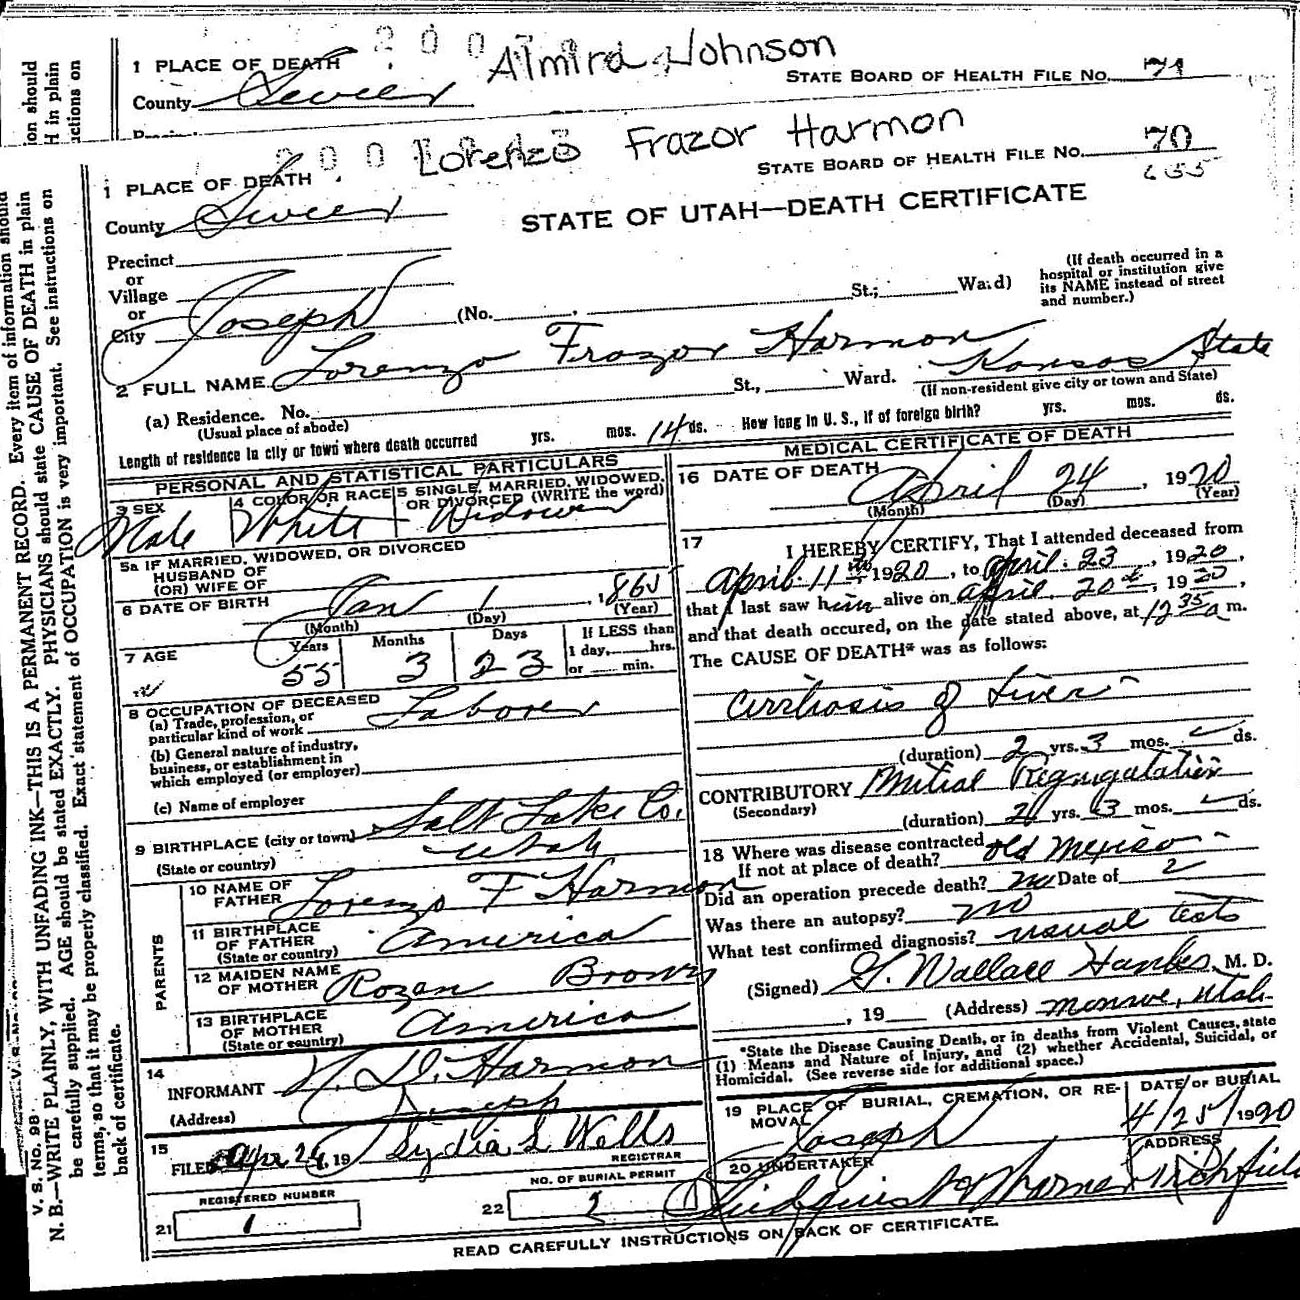 Almira Johnson
1 PLACE OF DEATH
STATE BOARD OF HEALTH FILE NO. 71
County Sevier
Lorenzo Frazor Harmon
STATE BOARD OF HEALTH FILE NO. 70
655
1 PLACE OF DEATH
County Sevier
STATE OF UTAH—DEATH CERTIFICATE
Precinct
or
Village
or
City Joseph (No. St.; Ward)
(If death occurred in a hospital or institution give its NAME instead of street and number.)
2 FULL NAME Lorenzo Frazor Harmon
(a) Residence. No. St., Ward. Kansas State
(Usual place of abode) (If non-resident give city or town and State)
Length of residence in city or town where death occurred yrs. mos. 14 ds. How long in U. S., if of foreign birth? yrs. mos. ds.
PERSONAL AND STATISTICAL PARTICULARS
3 SEX Male
4 COLOR OR RACE White
5 SINGLE, MARRIED, WIDOWED, OR DIVORCED (WRITE the word) Widower
5a IF MARRIED, WIDOWED, OR DIVORCED
HUSBAND OF
(OR) WIFE OF
6 DATE OF BIRTH Jan 1, 1865
(Month) (Day) (Year)
7 AGE Years 55 Months 3 Days 23 If LESS than 1 day, hrs. or min.
8 OCCUPATION OF DECEASED
(a) Trade, profession, or particular kind of work Laborer
(b) General nature of industry, business, or establishment in which employed (or employer)
(c) Name of employer
9 BIRTHPLACE (city or town) Salt Lake Co.
(State or country) Utah
PARENTS
10 NAME OF FATHER Lorenzo F Harmon
11 BIRTHPLACE OF FATHER (State or country) America
12 MAIDEN NAME OF MOTHER Rozan Brown
13 BIRTHPLACE OF MOTHER (State or country) America
14
INFORMANT Harmon
(Address) Joseph
15
FILED Apr 24, 19 Lydia L Wells
REGISTRAR
REGISTERED NUMBER
21 1
NO. OF BURIAL PERMIT
22 2
MEDICAL CERTIFICATE OF DEATH
16 DATE OF DEATH April 24, 1920
(Month) (Day) (Year)
17 I HEREBY CERTIFY, That I attended deceased from
April 11th 1920, to April 23, 1920,
that I last saw him alive on April 20th, 1920,
and that death occured, on the date stated above, at 12 35 a m.
The CAUSE OF DEATH* was as follows:
Cirrhosis of Liver
(duration) 2 yrs. 3 mos. ds.
CONTRIBUTORY Mitral Regurgitation
(Secondary)
(duration) 2 yrs. 3 mos. ds.
18 Where was disease contracted
If not at place of death? Old Mexico
Did an operation precede death? no Date of
Was there an autopsy? no
What test confirmed diagnosis? usual tests
(Signed) G. Wallace M. D.
, 19 (Address) Monroe, Utah
*State the Disease Causing Death, or in deaths from Violent Causes, state (1) Means and Nature of Injury, and (2) whether Accidental, Suicidal, or Homicidal. (See reverse side for additional space.)
19 PLACE OF BURIAL, CREMATION, OR REMOVAL Joseph
DATE OF BURIAL 4/25/1920
20 UNDERTAKER
ADDRESS Richfield
READ CAREFULLY INSTRUCTIONS ON BACK OF CERTIFICATE.
V. S. No. 98
N. B.—WRITE PLAINLY, WITH UNFADING INK—THIS IS A PERMANENT RECORD. Every item of information should
be carefully supplied. AGE should be stated EXACTLY. PHYSICIANS should state CAUSE OF DEATH in plain
terms, so that it may be properly classified. Exact statement of OCCUPATION is very important. See instructions on
back of certificate.